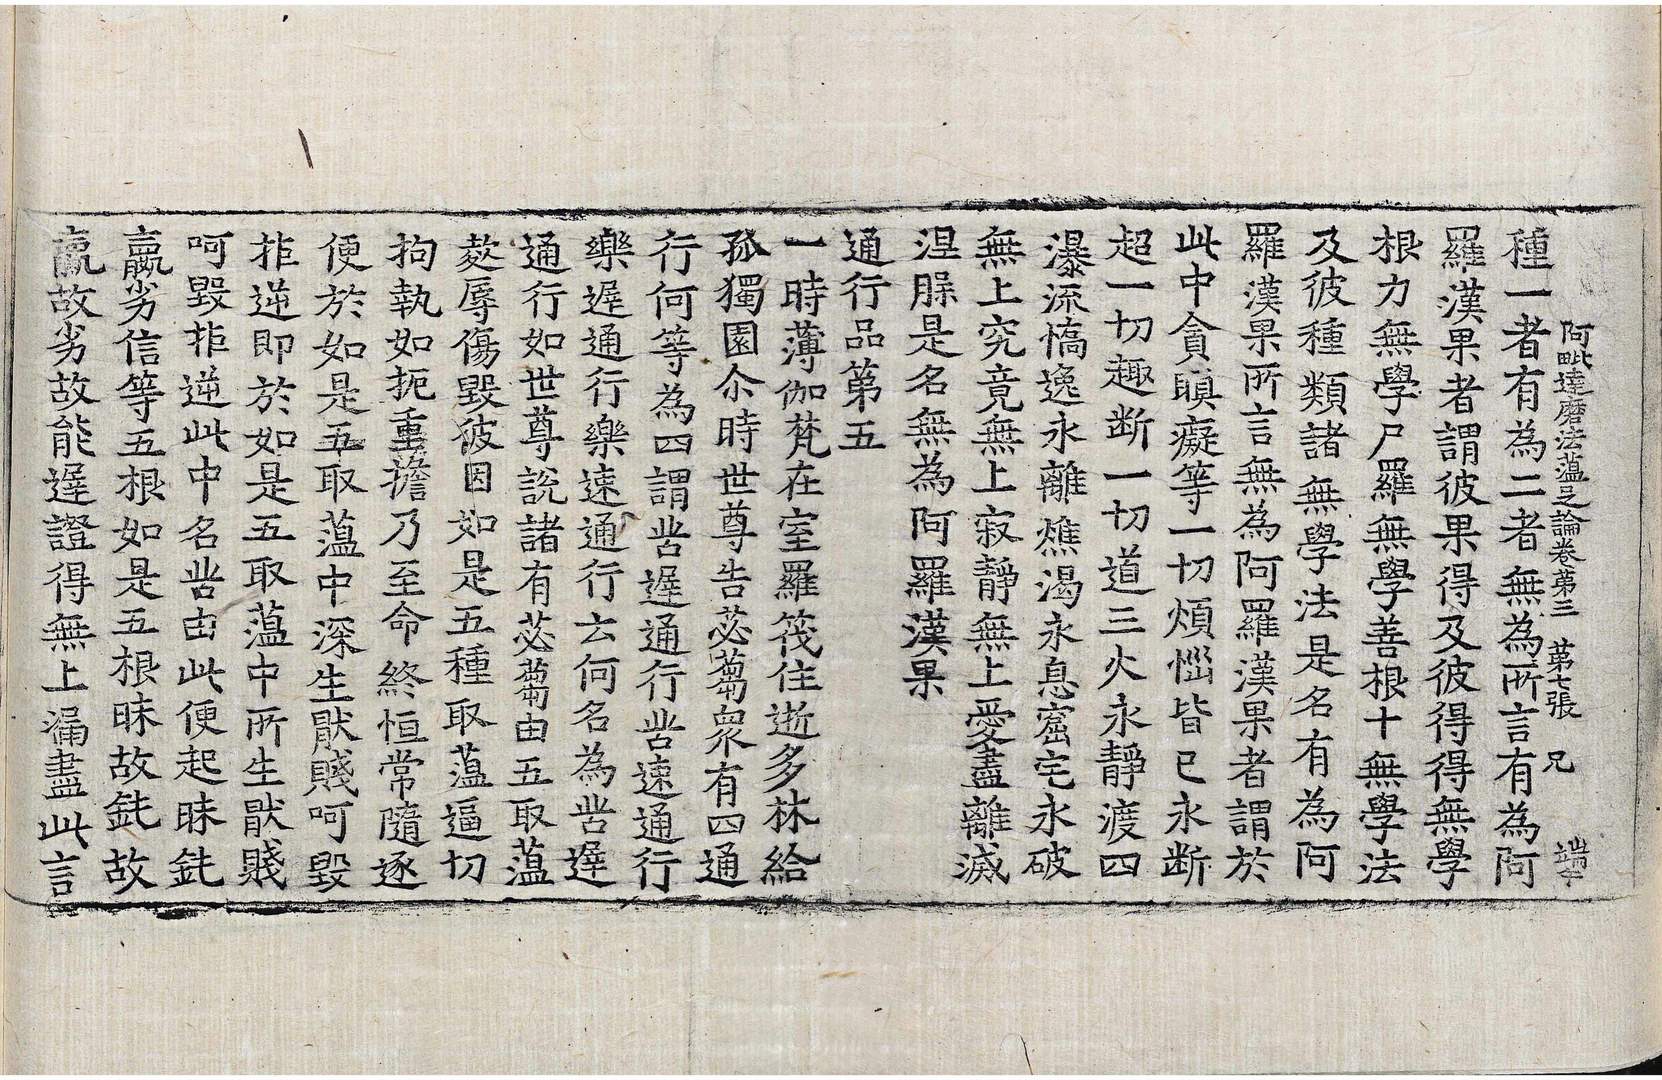 阿毗達磨法蘊足論卷第三　第七張　兄
種一者有為二者無為所言有為阿
羅漢果者謂彼果得及彼得得無學
根力無學尸羅無學善根十無學法
及彼種類諸無學法是名有為阿
羅漢果所言無為阿羅漢果者謂於
此中貪瞋癡等一切煩惱皆已永斷
超一切趣斷一切道三火永靜渡四
瀑流憍逸永離燋渴永息窟宅永破
無上究竟無上寂靜無上愛盡離滅
涅槃是名無為阿羅漢果
通行品第五
一時薄伽梵在室羅筏住逝多林給
孤獨園尒時世尊告苾蒭衆有四通
行何等為四謂苦遲通行苦速通行
樂遲通行樂速通行云何名為苦遲
通行如世尊說諸有苾蒭由五取蘊
欻辱傷毀彼因如是五種取蘊逼切
拘執如扼重擔乃至命終恒常隨逐
便於如是五取蘊中深生猒賤呵毀
拒逆即於如是五取蘊中所生猒賤
呵毀拒逆此中名苦由此便起昧鈍
羸劣信等五根如是五根昧故鈍故
羸故劣故能遲證得無上漏盡此言